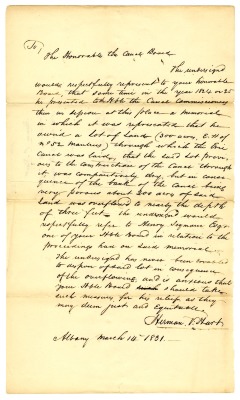 To
The Honorable the Canal Board
The undersigned
would respectfully represent to your honorable
Board, that some time in the year 1824 or 25
he presented to the Canal Commissioners
then in session at this place a memorial
in which it was represented that he
owned a lot of land (300 acres, E. H of
No 52 Manlius) through which the Erie
Canal was laid, that the said lot previ-
ous to the construction of the Canal through
it was comparatively dry, but in conse-
quence of the bank of the Canal being
made, about 200 acres of said
Land was overflowed to nearly the depth
of three feet. The undersigned would
respectfully refer to Henry Seymour Esqr.
one of your Hble Board in relation to the
proceedings had on said memorial.
The undersigned has never been
upon said lot in consequence
of the overflowing, and is anxious that
your Hble Board should take
such measures for his relief as they
may deem just and Equitable.
Herman V. Hart
Albany March 10th 1831.